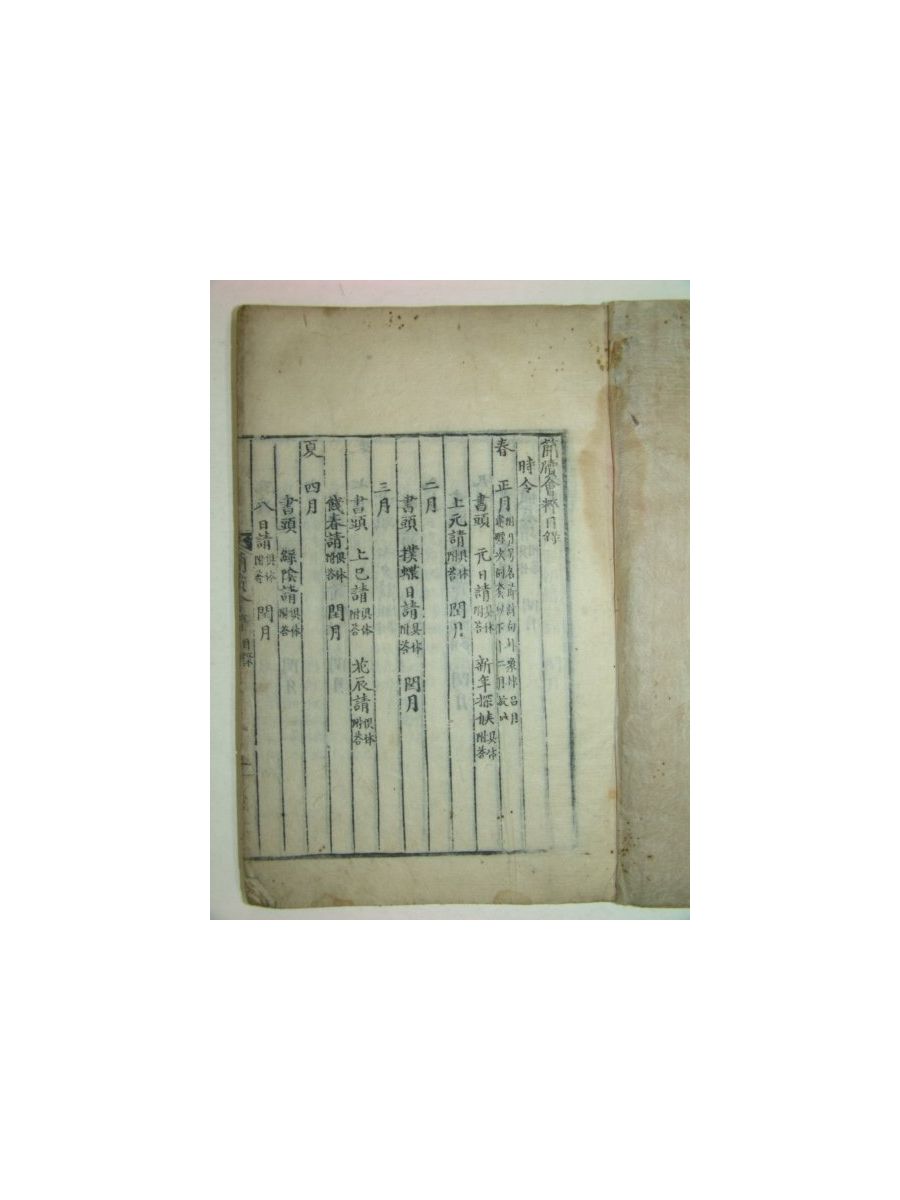 簡牘會粹目錄
時令
春 正月
書頭 元日請 具休 附答 新年探候 具休 附答
上元請 具休 附答 閏月
二月
書頭 撲蝶日請 具休 附答 閏月
三月
書頭 上巳請 俱休 附答 北辰請 俱休 附答
餞春請 俱休 附答 閏月
夏 四月
書頭 綠陰請 俱休 附答
八日請 俱休 附答 閏月
目錄